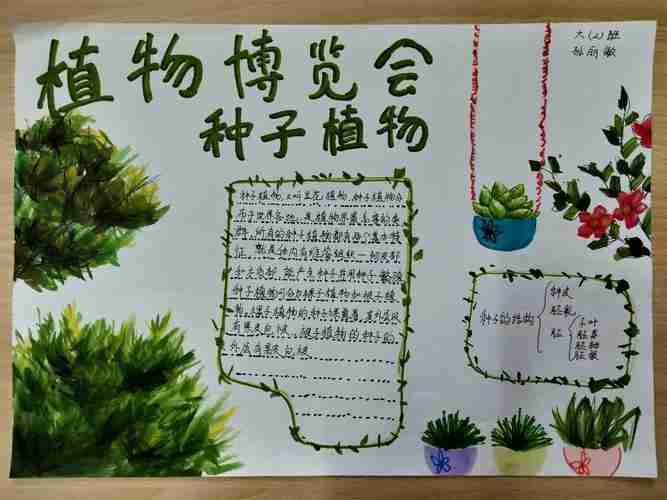 植物博览会
种子植物
大(2)班
孙丽敏
种子植物,又叫显花植物,种子植物分
布于世界各地,是植物界最高等的类
群,所有的种子植物都有两个基本特
征,就是体内有维管组织一韧皮部
和木质部,能产生种子并用种子繁殖
种子植物可分为裸子植物和被子植
物,裸子植物的种子裸露着,其外层没
有果皮包被,被子植物的种子的
外层有果皮包被
种子的结构
种皮
胚乳
胚
子叶
胚芽
胚轴
胚根